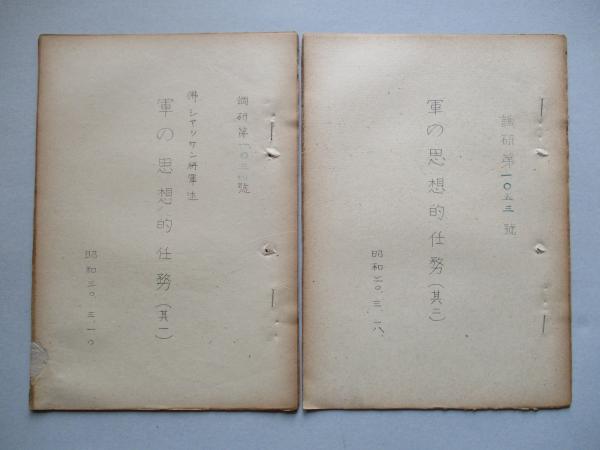 調研第一〇三四號
佛シヤリケン将軍述
軍の思想的任務（其一）
昭和二〇．三．一〇
調研第一〇五三號
軍の思想的任務（其二）
昭和二〇．三．一八．